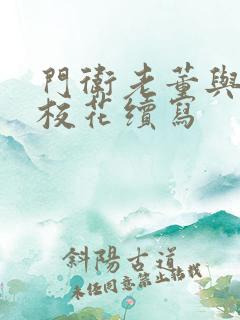 門衛老董與
校花續寫
斜陽古道
未經同意禁止轉載